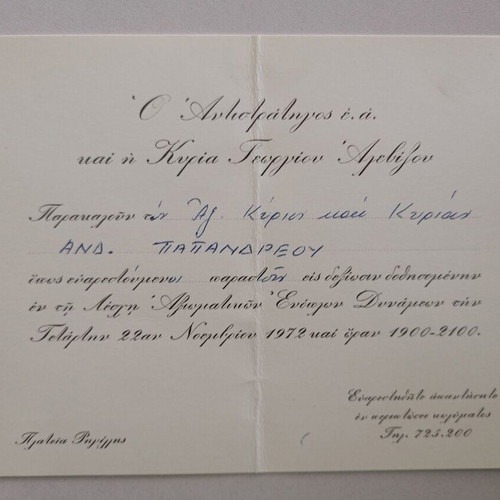 Ὁ Ἀντιστράτηγος ἐ. ἀ.
καὶ ἡ Κυρία Γεωργίου Ἀλεβίζου
Παρακαλοῦν τὸν Ἀξ. Κύριον καὶ Κυρίαν
ΑΝΔ. ΠΑΠΑΝΔΡΕΟΥ
ὅπως εὐαρεστούμενοι παραστοῦν εἰς δεξίωσιν δοθησομένην
ἐν τῇ Λέσχῃ Ἀξιωματικῶν Ἐνόπλων Δυνάμεων τὴν
Τετάρτην 22αν Νοεμβρίου 1972 καὶ ὥραν 1900-2100.
Εὐαρεστηθῆτε ἀπαντήσητε
ἐν περιπτώσει κωλύματος
Τηλ. 725.200
Πλατεῖα Ρηγίλλης